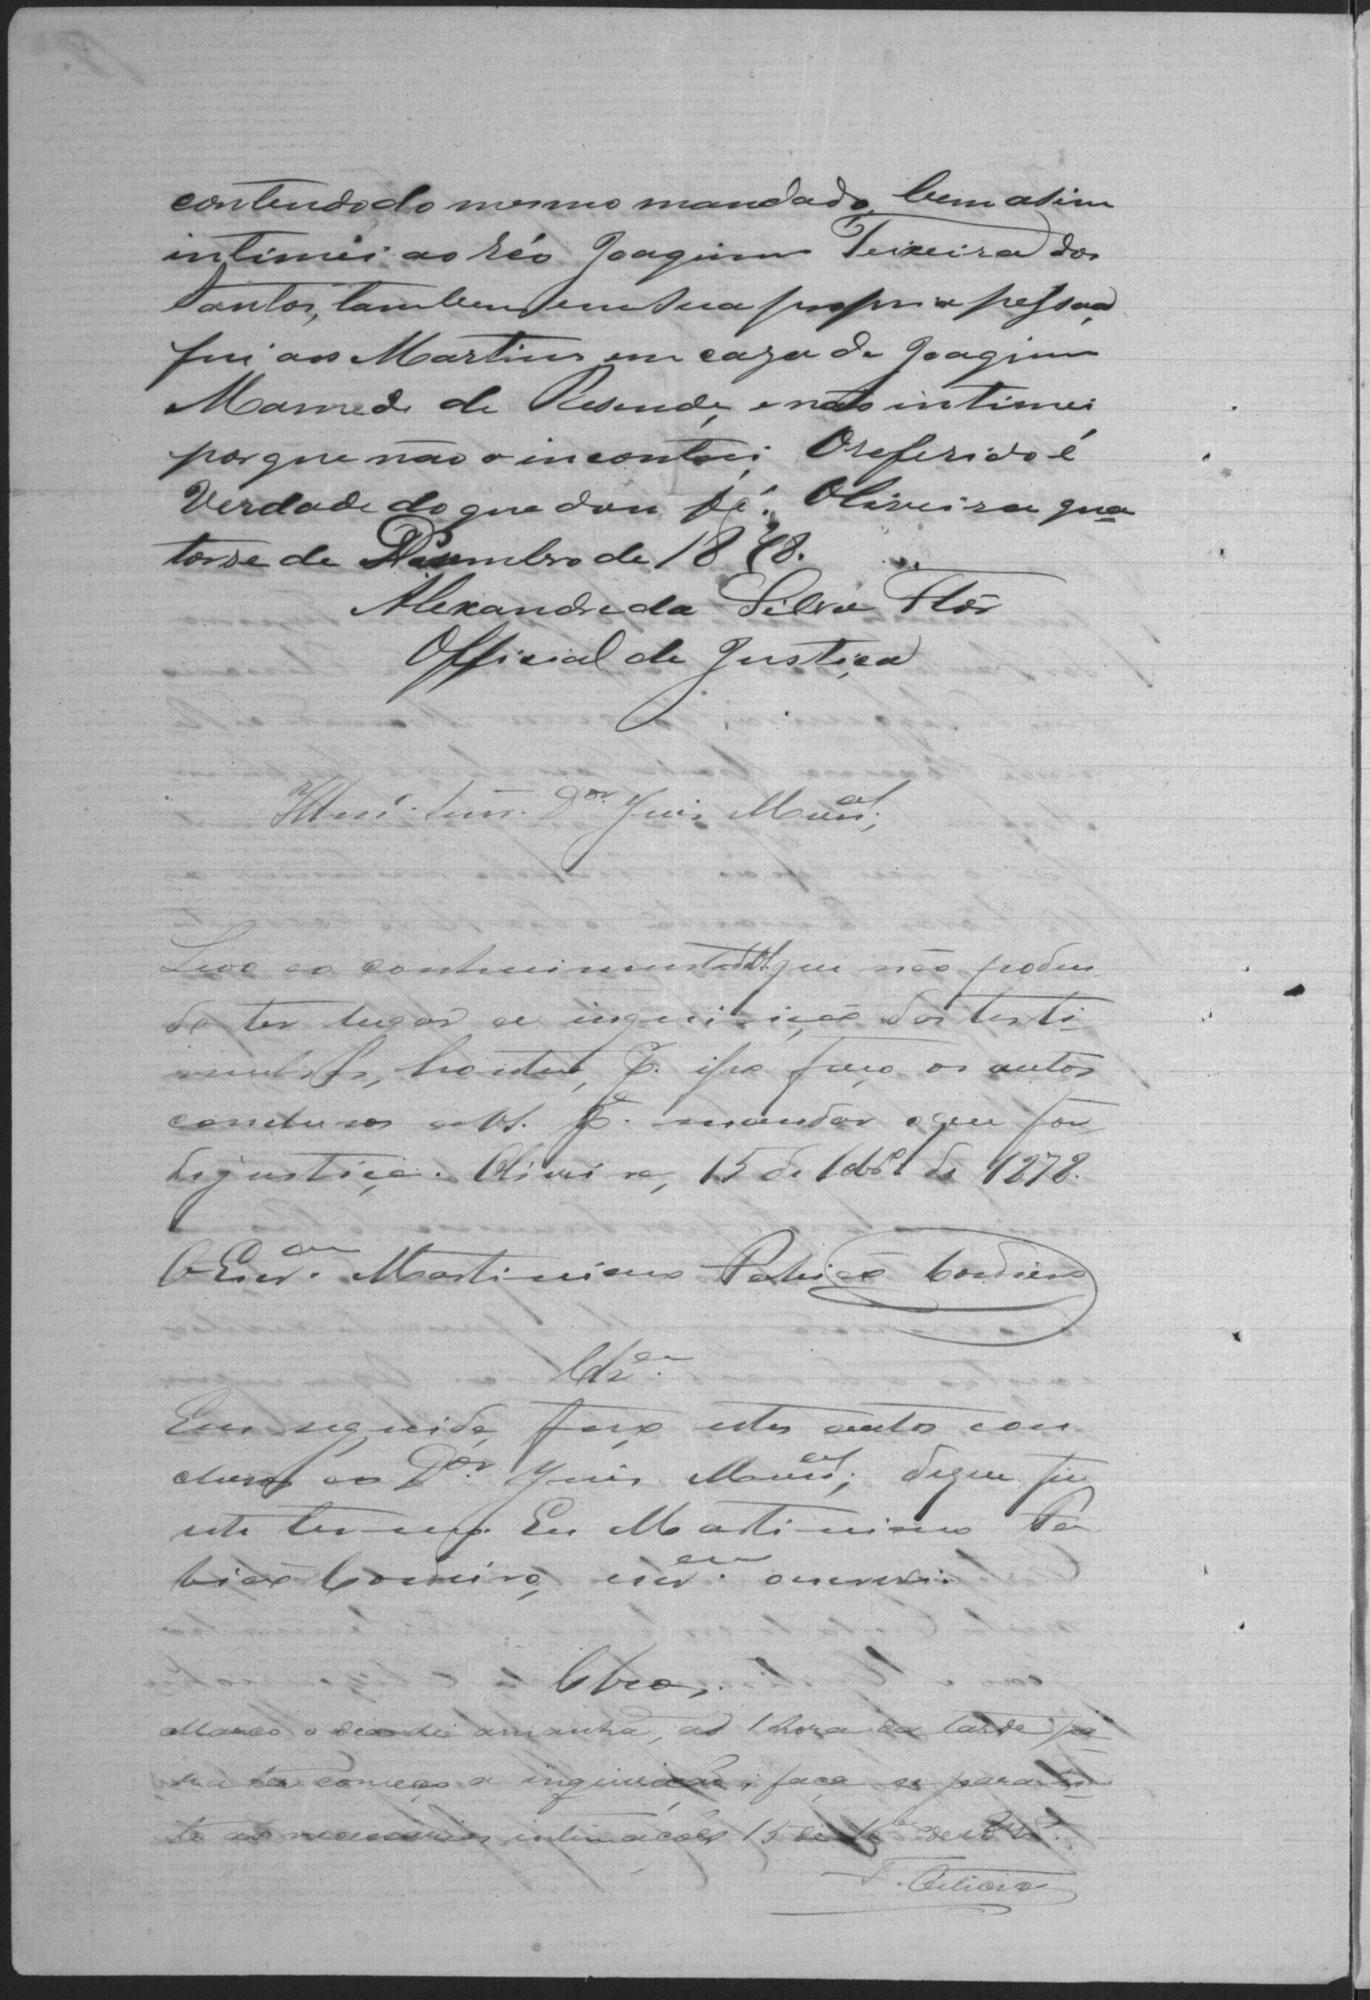 contendo do mesmo mandado, bem asim
intimei ao réo Joaquim Teixeira dos
Santos, tambem em sua propria pessoa,
fui aos Martins em caza de Joaquim
Mamede de Resende, e não intimei
porque não o incontrei. O referido é
Verdade do que dou fé. Oliveira qua
torse de Desembro de 1878.
Alexandre da Silva Flôr
Official de Justiça
Illmº. Snr. Dor Juis Munal;
Levo ao conhecimento de VS. que não poden
do ter lugar a inquirição das testi
munhas, hontem, P. isso faço os autos
conclusos a VS. Pª. mandar o que fôr
de justiça. Oliveira, 15 de 10brº de 1878.
O Escram. Martiniano Patricio Cordeiro
Clzam.
Em seguida, faço estes autos con
clusos ao Dor. Juis Munal; de que fiz
este termo. Eu Martiniano Pa
tricio Cordeiro, escram. o escrevi.
Clzos.
Marco o dia de amanhã, as 1 hora da tarde pa
ra ter começo a inquirição; faça se para is
to as necessarias intimações 15 de 10bro de 1878.